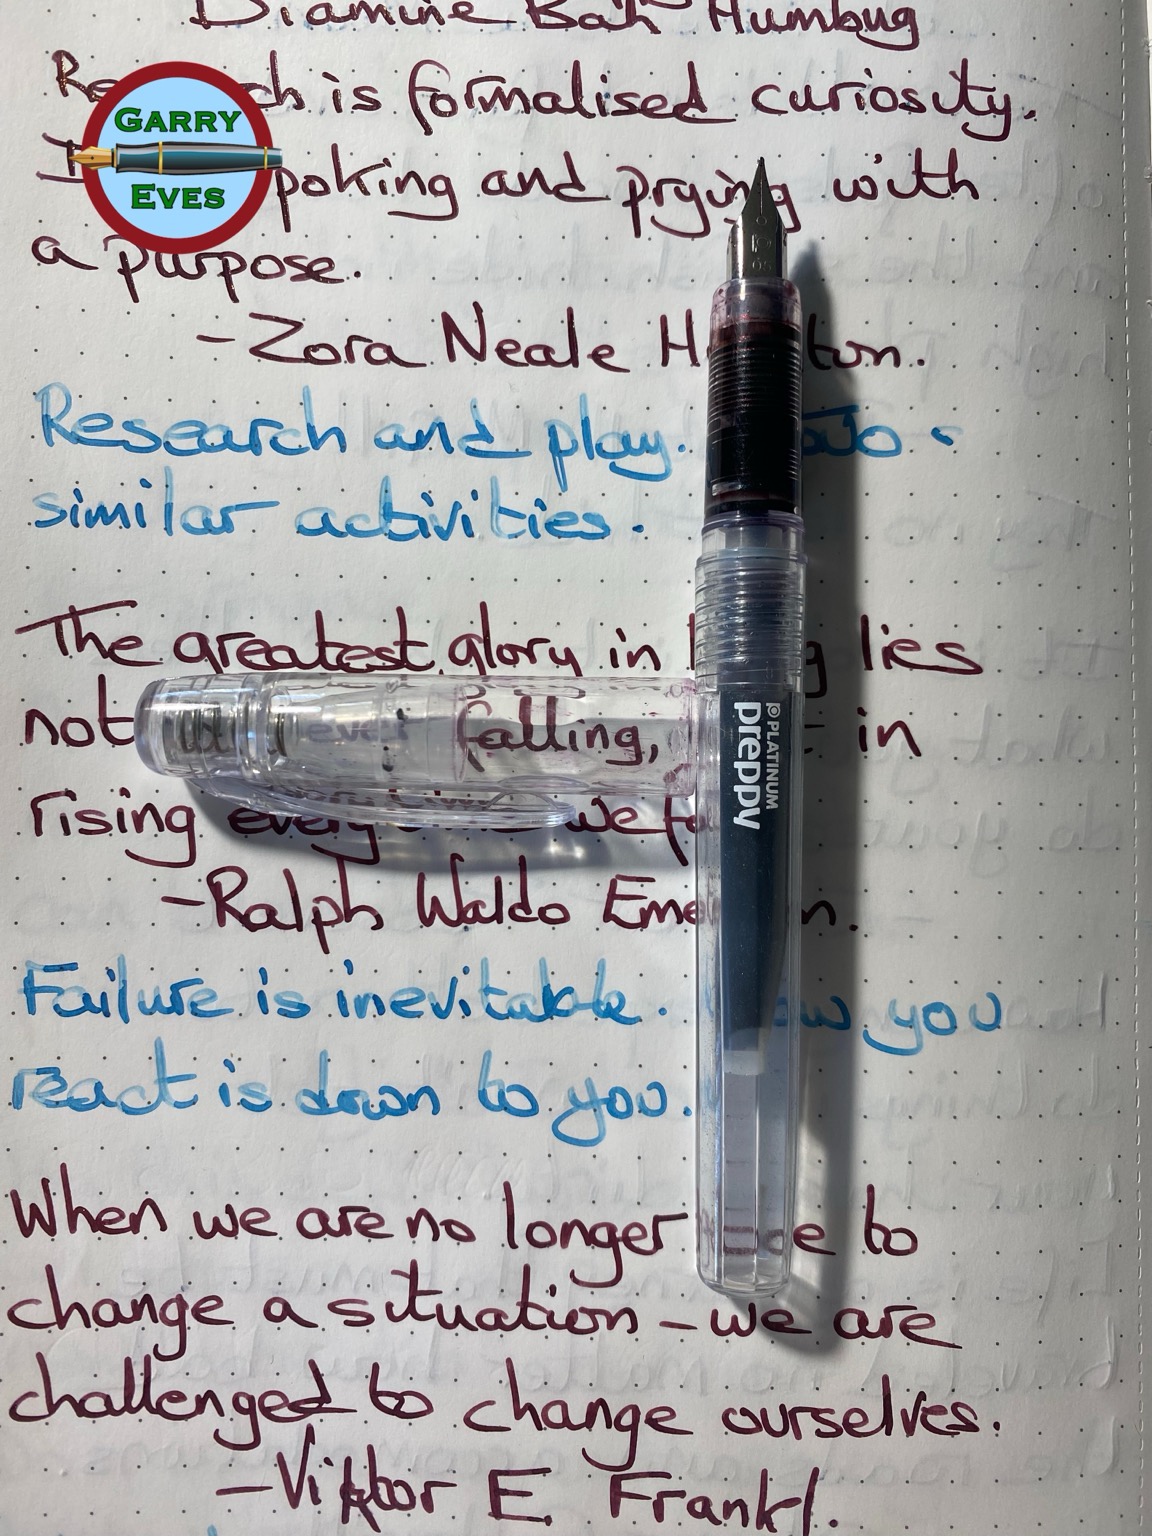 Diamine Bah Humbug
is formalised curiosity.
poking and prying with
a purpose.
-Zora Neale
GARRY
EVES
Research and play.
similar activities.
The greatest glory in lies
not falling, in
rising every we
-Ralph Waldo
Failure is inevitable. you
react is down to you.
When we are no longer to
change a situation - we are
challenged to change ourselves.
-Viktor E. Frankl.
PLATINUM
preppy